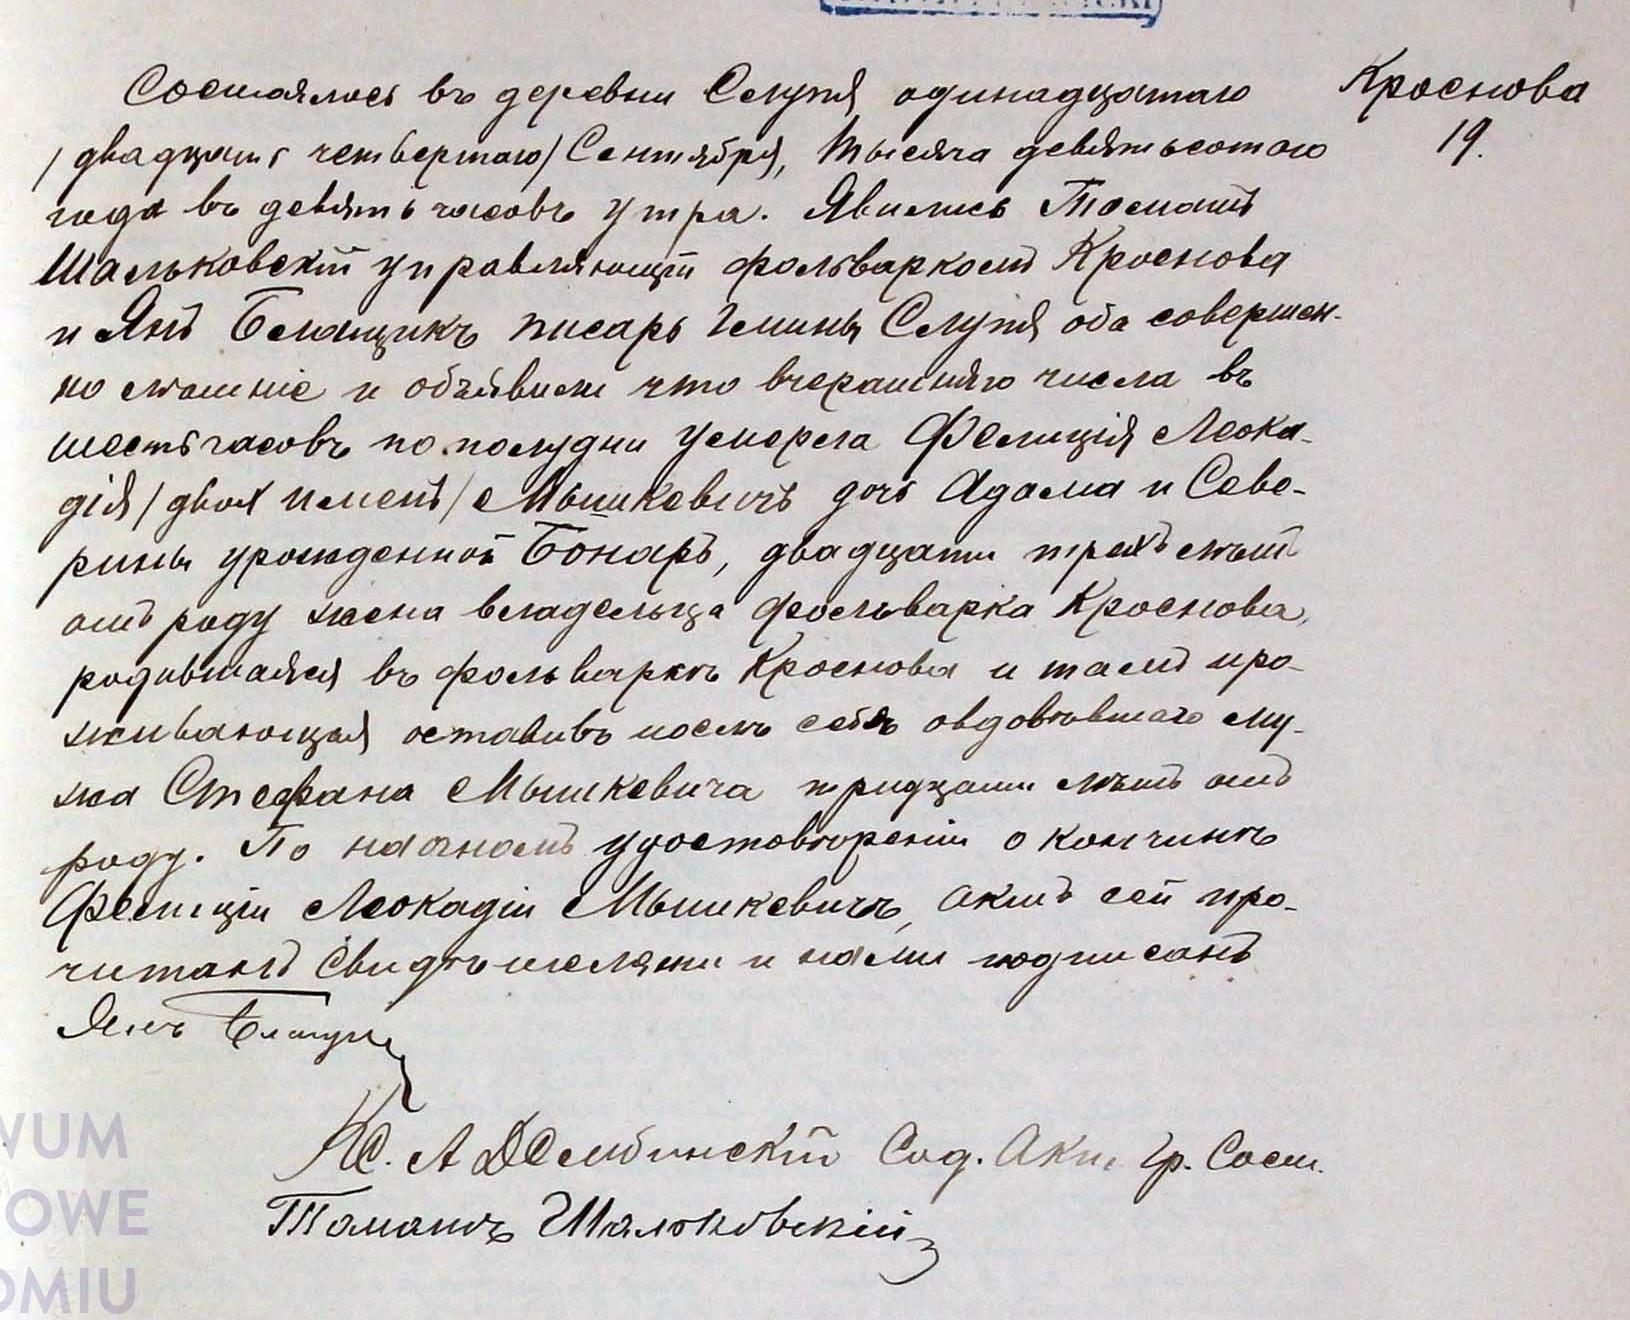 Кроснова
19.
Состоялось въ деревни Служя одинадцатаго
/двадцать четвертаго/ Сентября, тысяча девятьсотого
года въ девять часовъ утра. Явились Томашъ
Шальковскій управляющій фольваркомъ Кроснова
и Янъ Блащикъ писарь Гмины Служя оба совершен-
но лѣтніе и объявили что вчерашняго числа въ
шесть часовъ по полудни умерла Фелиція Леока-
дія /двох именъ/ Мышкевичъ дочь Адама и Севе-
рины урожденной Бонаръ, двадцати трехъ лѣтъ
отъ роду жена владельца фольварка Кроснова,
родившаяся въ фольваркѣ Кроснова и тамъ про-
живающая оставивъ послѣ себя овдовѣвшаго му-
жа Стефана Мышкевича тридцати лѣтъ отъ
роду. По наочномъ удостовѣреніи о кончинѣ
Фелиціи Леокадіи Мышкевичъ, актъ сей про-
читанъ свидѣтелями и нами подписанъ
Янъ
Кс. А Дембинскій Сод. Акт. Гр. Сост.
Томашъ Шальковскій
WUM
OWE
OMIU